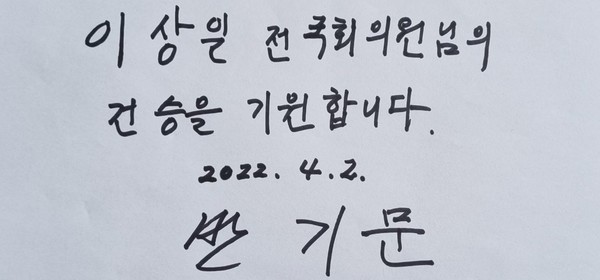 이상일 전 국회의원님의
건승을 기원합니다.
2022. 4. 2.
반기문